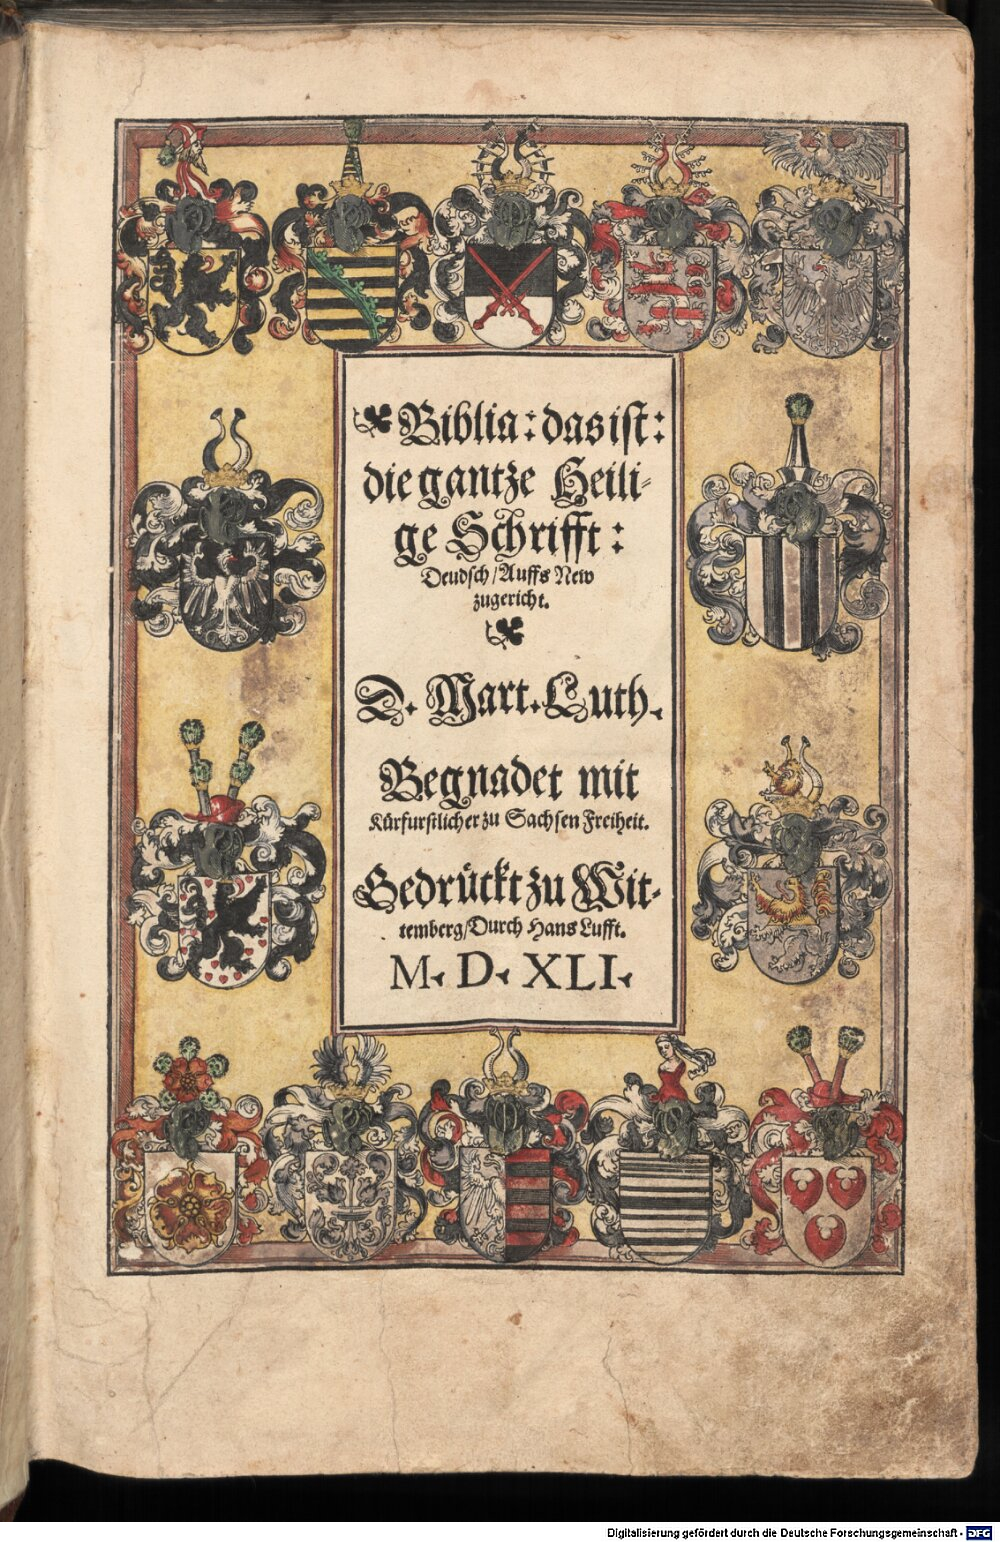 Biblia: das ist:
die gantze Heili-
ge Schrifft:
Deudsch/Auffs New
zugericht.
D. Mart. Luth.
Begnadet mit
Kürfurstlicher zu Sachsen Freiheit.
Gedrückt zu Wit-
temberg/Durch Hans Lufft.
M. D. XLI.
Digitalisierung gefördert durch die Deutsche Forschungsgemeinschaft - DFG